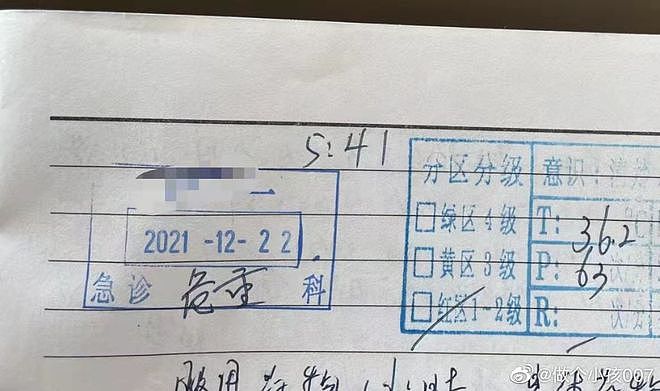 5:41
一
2021-12-22
急诊 危重 科
分区分级 意识:清
□绿区4级 T: 36.2 ℃
□黄区3级 P: 63 次/
□红区1-2级 R: 次/分
服用药物
@做个小孩007